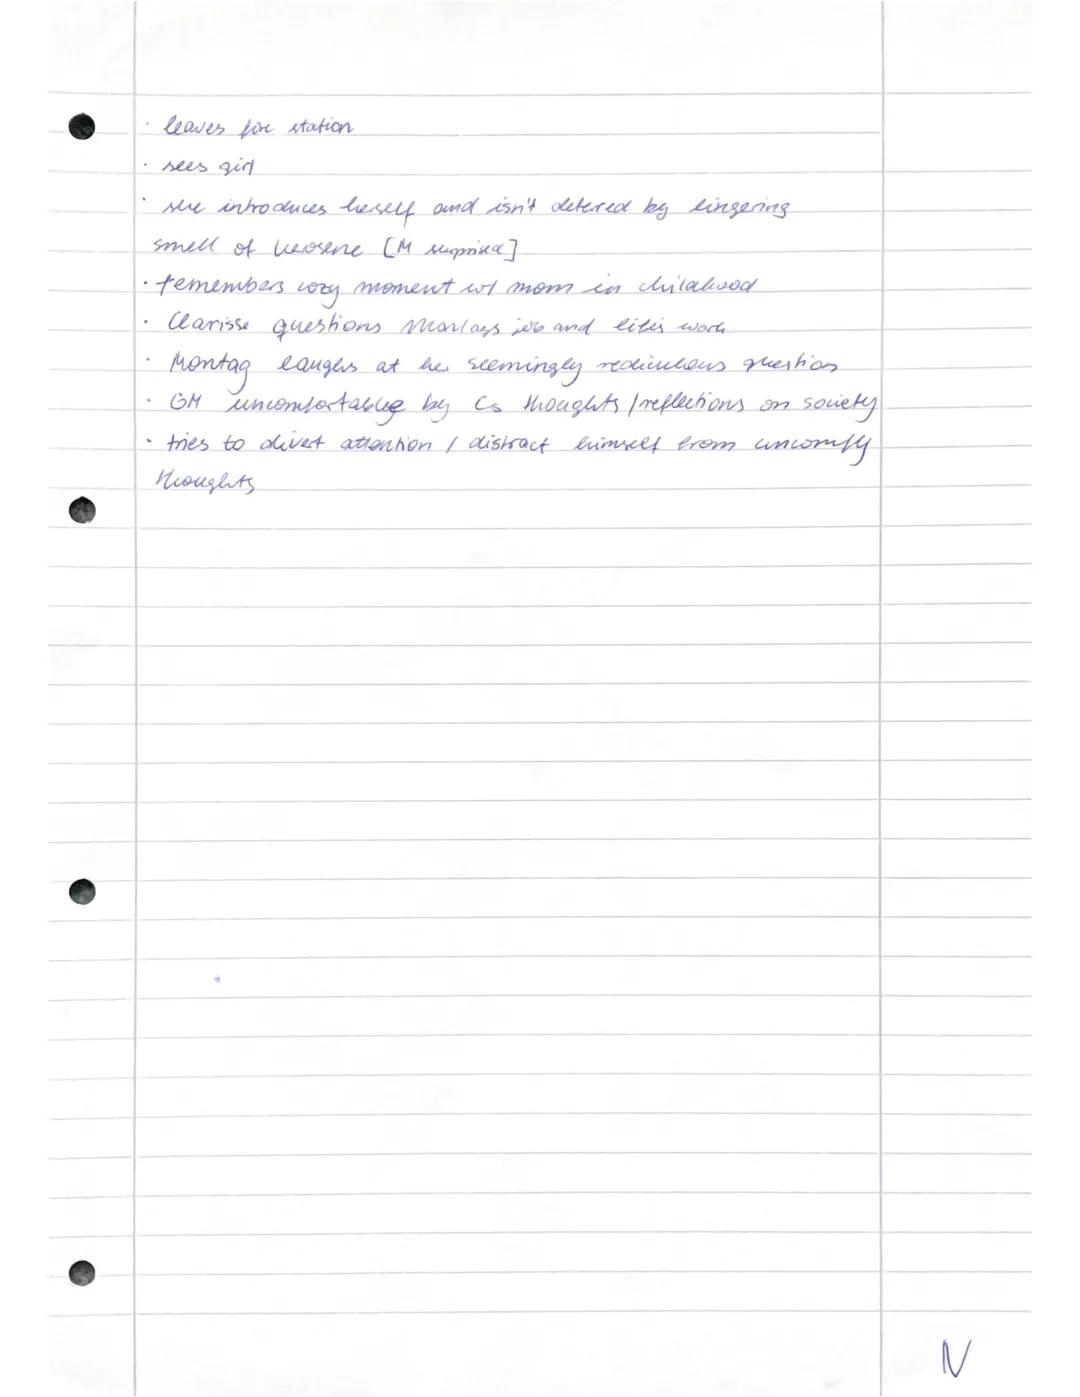 · leaves fire station
· sees girl
· she introduces herself and isn't detered by lingering
smell of kerosene [M surprised]
· remembers cozy moment w/ mom in childhood
· Clarisse questions Montags job and work
· Montag laughs at her seemingly rediculous question
· GM uncomfortable by Cs thoughts / reflections on society
· tries to divert attention / distract himself from uncomfy
thoughts
N